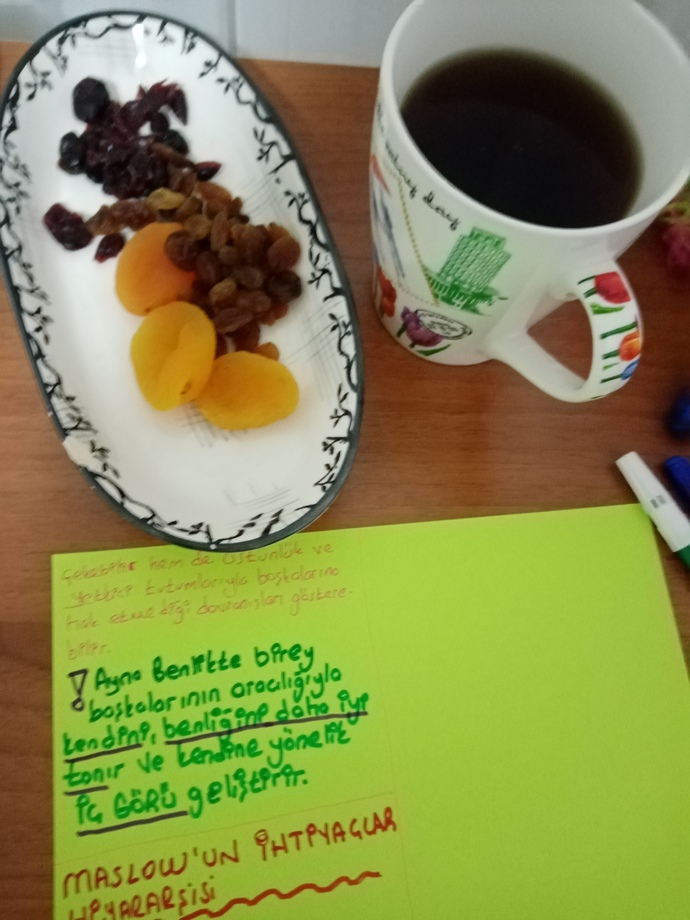 çekebilir hem de üstünlük ve
yetkici tutumlarıyla başkalarına
hak etmediği davranışları göstere-
bilir.
! Ayna Benlikte birey
başkalarının aracılığıyla
kendini, benliğini daha iyi
tanır ve kendine yönelik
İÇ GÖRÜ geliştirir.
MASLOW'UN İHTİYAÇLAR
HİYARARŞİSİ